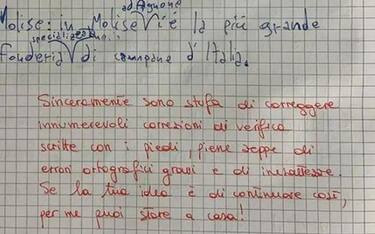 ad Agnone
Molise: in Molise c'è la più grande
specializzata
fonderia di campane d'Italia.
Sinceramente sono stufa di correggere
innumerevoli correzioni di verifica
scritte con i piedi, piene zeppe di
errori ortografici gravi e di inesattezze.
Se la tua idea è di continuare così,
per me puoi stare a casa!